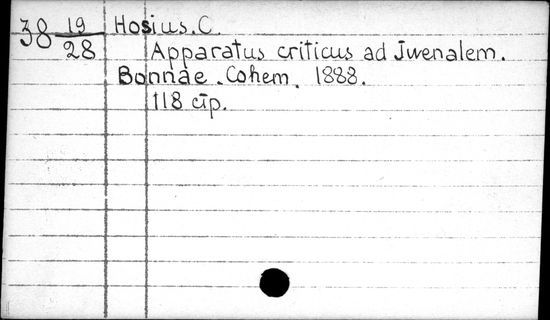 38 19/28 Hosius. C.
Apparatus criticus ad Juvenalem.
Bonnae. Cohem. 1888.
118 стр.